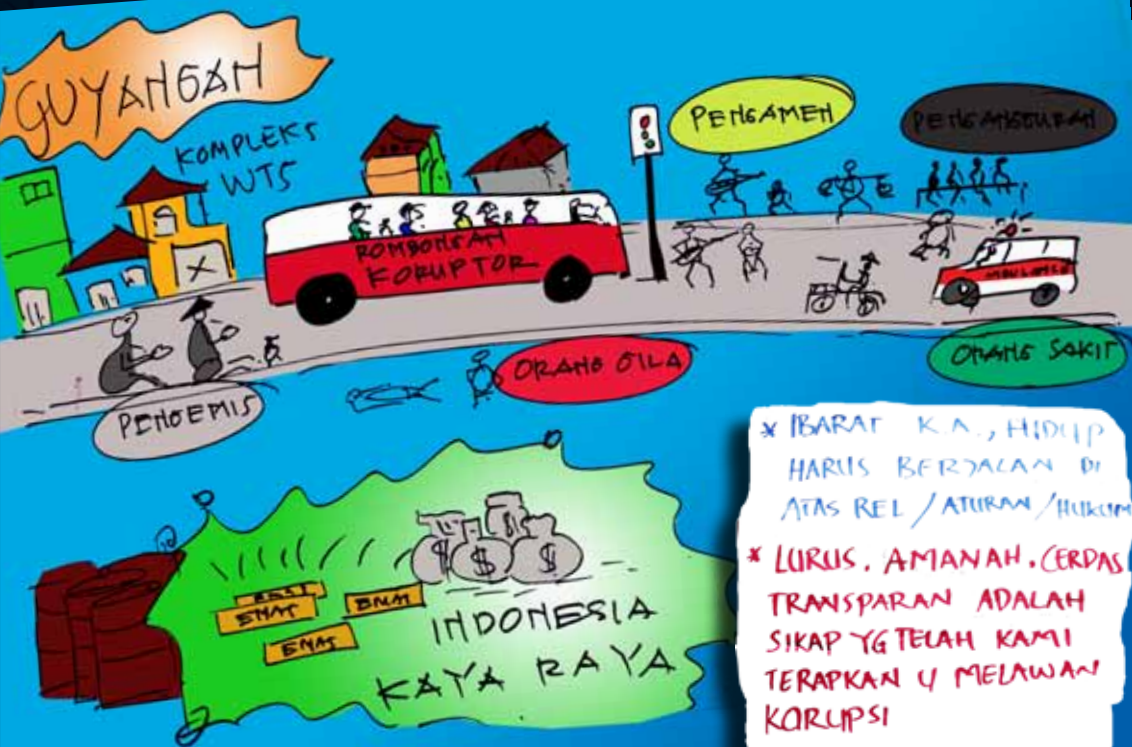 GUYANGAN
KOMPLEKS
WTS
PENGAMEN
PENGANGGURAN
ROMBONGAN
KORUPTOR
AMBULANCE
ORANG GILA
ORANG SAKIT
PENGEMIS
EMAS
EMAS
EMAS
$ $ $
INDONESIA
KAYA RAYA
* IBARAT K.A., HIDUP
HARUS BERJALAN DI
ATAS REL / ATURAN / HUKUM
* LURUS. AMANAH. CERDAS
TRANSPARAN ADALAH
SIKAP YG TELAH KAMI
TERAPKAN U MELAWAN
KORUPSI